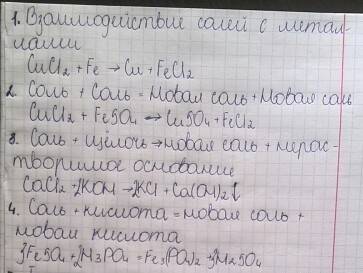 1. Взаимодействие солей с метал-
лами
CuCl₂ + Fe → Cu + FeCl₂
2. Соль + Соль = Новая соль + Новая соль
CuCl₂ + FeSO₄ → CuSO₄ + FeCl₂
3. Соль + щёлочь → новая соль + нерас-
творимое основание
CaCl₂ + 2KOH → 2KCl + Ca(OH)₂↓
4. Соль + кислота = новая соль +
новая кислота
3FeSO₄ + 2H₃PO₄ = Fe₃(PO₄)₂ + 3H₂SO₄